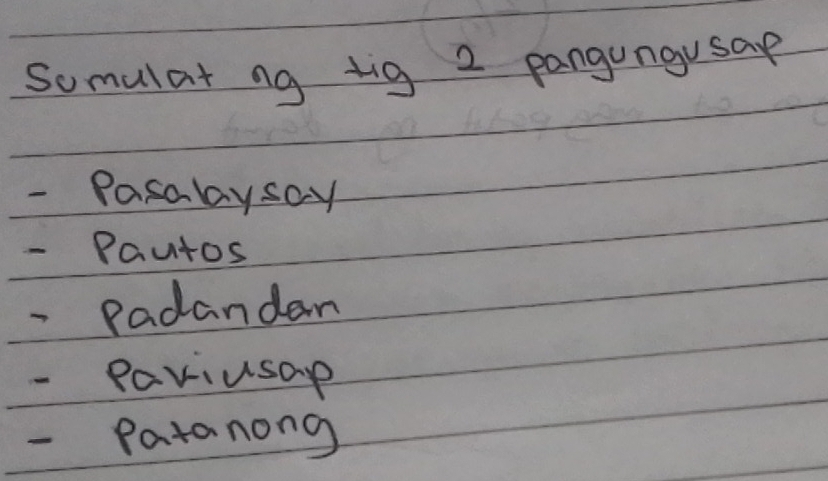 Sumulat ng tig 2 pangungusap
- Pasalaysay
- Pautos
- Padandan
- Pakiusap
- Patanong